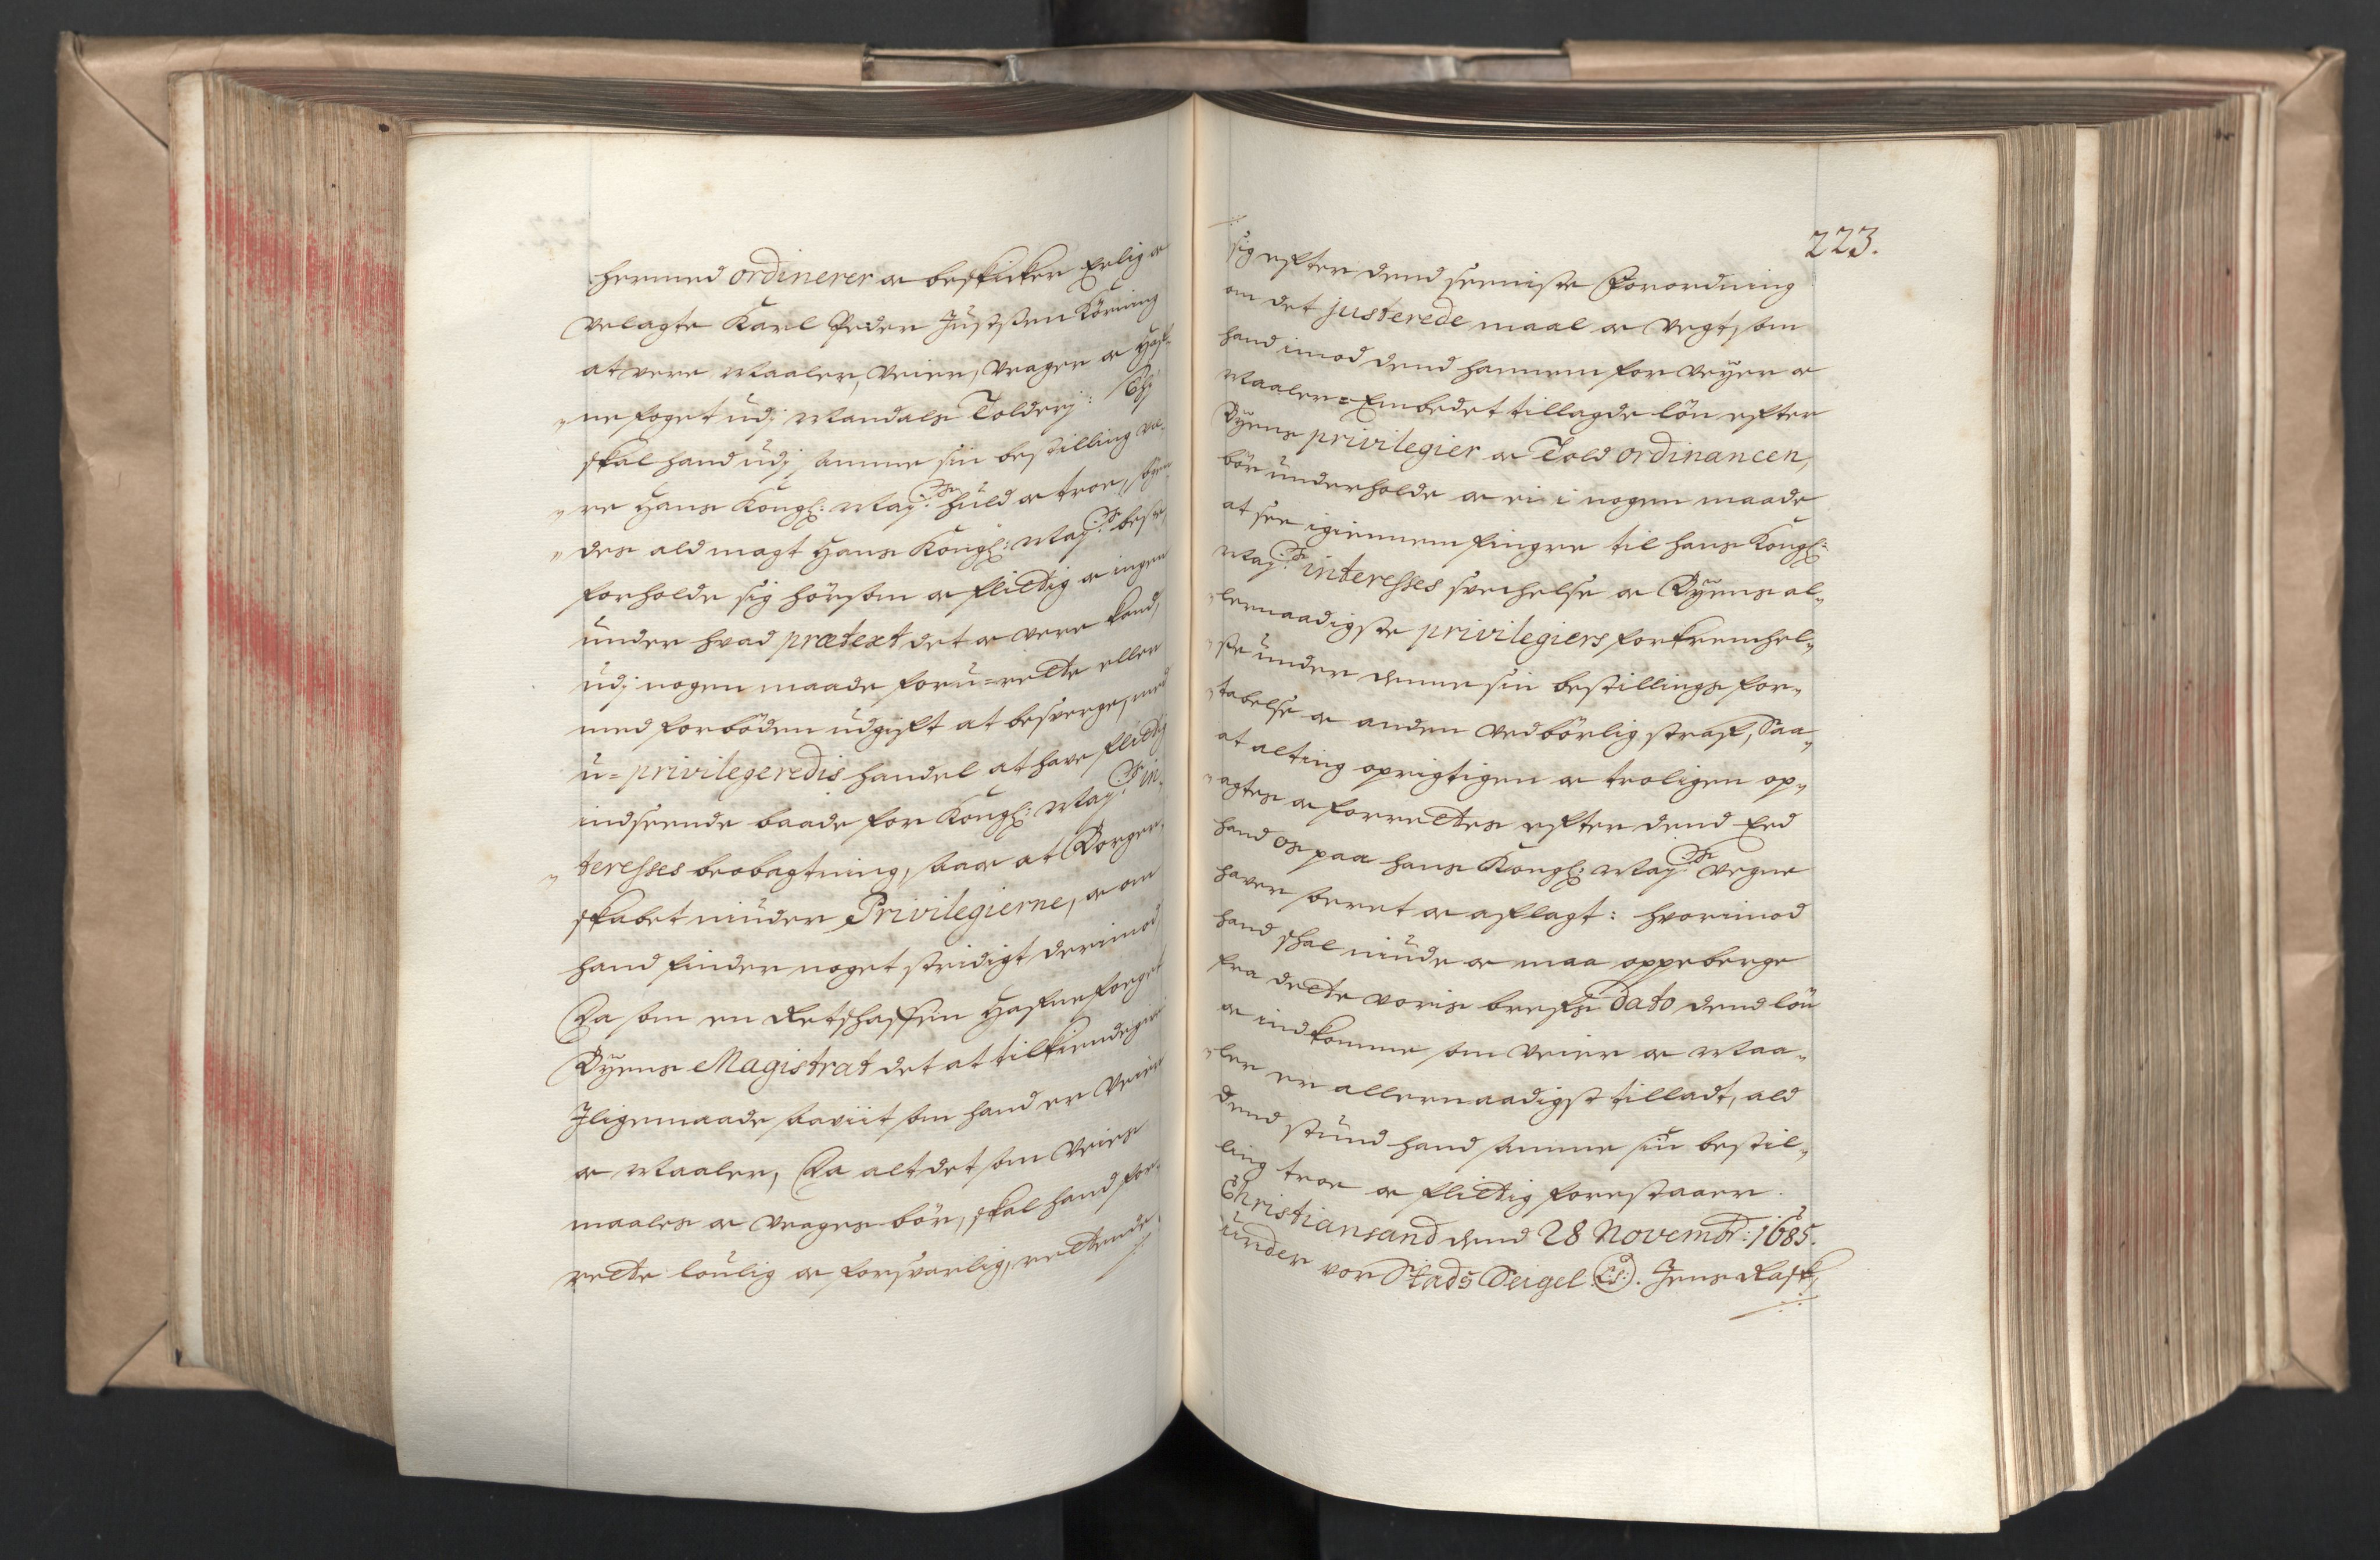 hermed ordinerer oc beskicker Erlig oc
Velagte Karl Peder Justsen Körning
at vere Maaler, Veier, Vrager oc Haf-
„ne foget udj Mandals Tolderj: Thj
skal hand udj samme sin bestilling ve-
„re Hans Kongl: May:ts huld oc troe, søge
„des ald magt Hans Kongl: May:ts beste,
forholde sig hörsom oc flictig oc ingen
under hvad prætext det oc vere kand,
udj nogen maade foru=rette eller
med forböden udgift at besverge, med
u=privilegeredis handel at have flictig
indseende baade for Kongl: May:ts in-
„teresses beobagtning, saa at Borger-
skabet niuder Privilegierne, oc om
hand finder noget stridigt derimod,
Da som en Retschaffen Hafnefoget
Byens Magistrat det at tilkiendegive
Jligemaade saaviit som hand er Veier
oc Maaler, Da alt det som Veies
maales oc vrages bör, skal hand for-
rette loulig oc forsvarlig, rettende
223.
sig efter dend seeniste Forordning
om det justerede maal oc vegt, som
hand imod dend hannem for Veyer oc
Maaler=Embedet tillagde lön efter
Byens privilegier oc Told ordinancen,
bör underholde oc ei i nogen maade
at see igiennem fingre til hans Kongl:
May:ts interesses svechelse oc Byens al-
„lernaadigste privilegiers forkrenchel-
„se under denne sin bestillings for-
„tabelse oc anden vedbörlig straf, Saa
at alting oprigtigen oc troligen op-
„agtes oc forrettes efter dend Eed
hand os paa hans Kongl: May:ts Vegne
haver soret oc aflagt: hvorimod
hand skal niude oc maa oppeberge
fra dette voris brefs dato dend lön
oc indkomme som Veier oc Maa-
„ler er allernaadigst tilladt, ald
dend stund hand samme sin bestil-
ling troe oc flictig forestaaer.
Christiansand dend 28 Novembr: 1685.
under vor Stads Seigel (LS). Jens Rask,